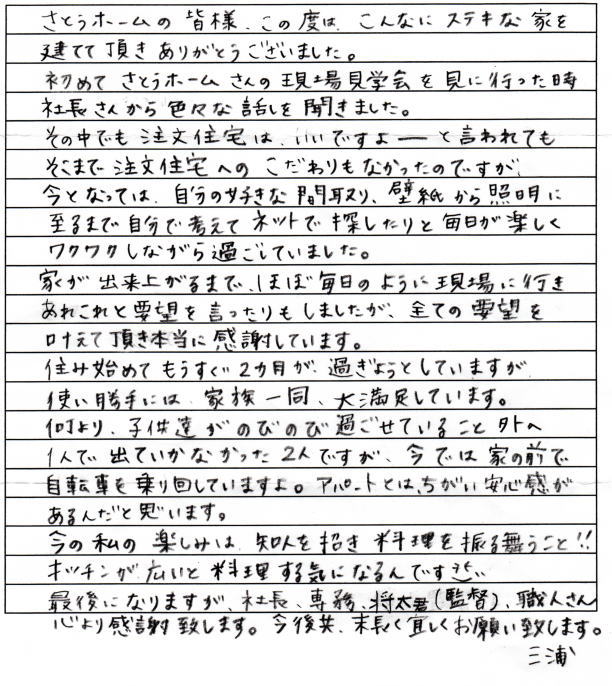 さとうホームの 皆様、この度は、こんなに ステキな 家を
建てて 頂き ありがとうございました。
初めて さとうホーム さんの 現場見学会を 見に 行った時
社長さんから 色々な 話しを 聞きました。
その中でも 注文住宅は、いいですよ── と言われても
そこまで 注文住宅への こだわりも なかったのですが、
今となっては、自分の好きな 間取り、壁紙から 照明に
至るまで 自分で 考えて ネットで 探したりと 毎日が 楽しく
ワクワクしながら 過ごしていました。
家が 出来上がるまで、ほぼ 毎日の ように 現場に 行き
あれこれと 要望を 言ったりも しましたが、全ての 要望を
叶えて 頂き 本当に 感謝しています。
住み始めて もうすぐ 2カ月が、過ぎようとしていますが
使い勝手には、家族一同、大満足しています。
何より、子供達が のびのび 過ごせていること 外へ
1人で 出ていかなかった 2人ですが、今では 家の前で
自転車を 乗り回していますよ。アパートとは、ちがい 安心感が
あるんだと思います。
今の 私の 楽しみは、知人を 招き 料理を 振る舞うこと!!
キッチンが 広いと 料理 する気に なるんです
最後になりますが、社長、専務、将太君(監督)、職人さん
心より感謝致します。今後共、末長く 宜しく お願い致します。
三浦